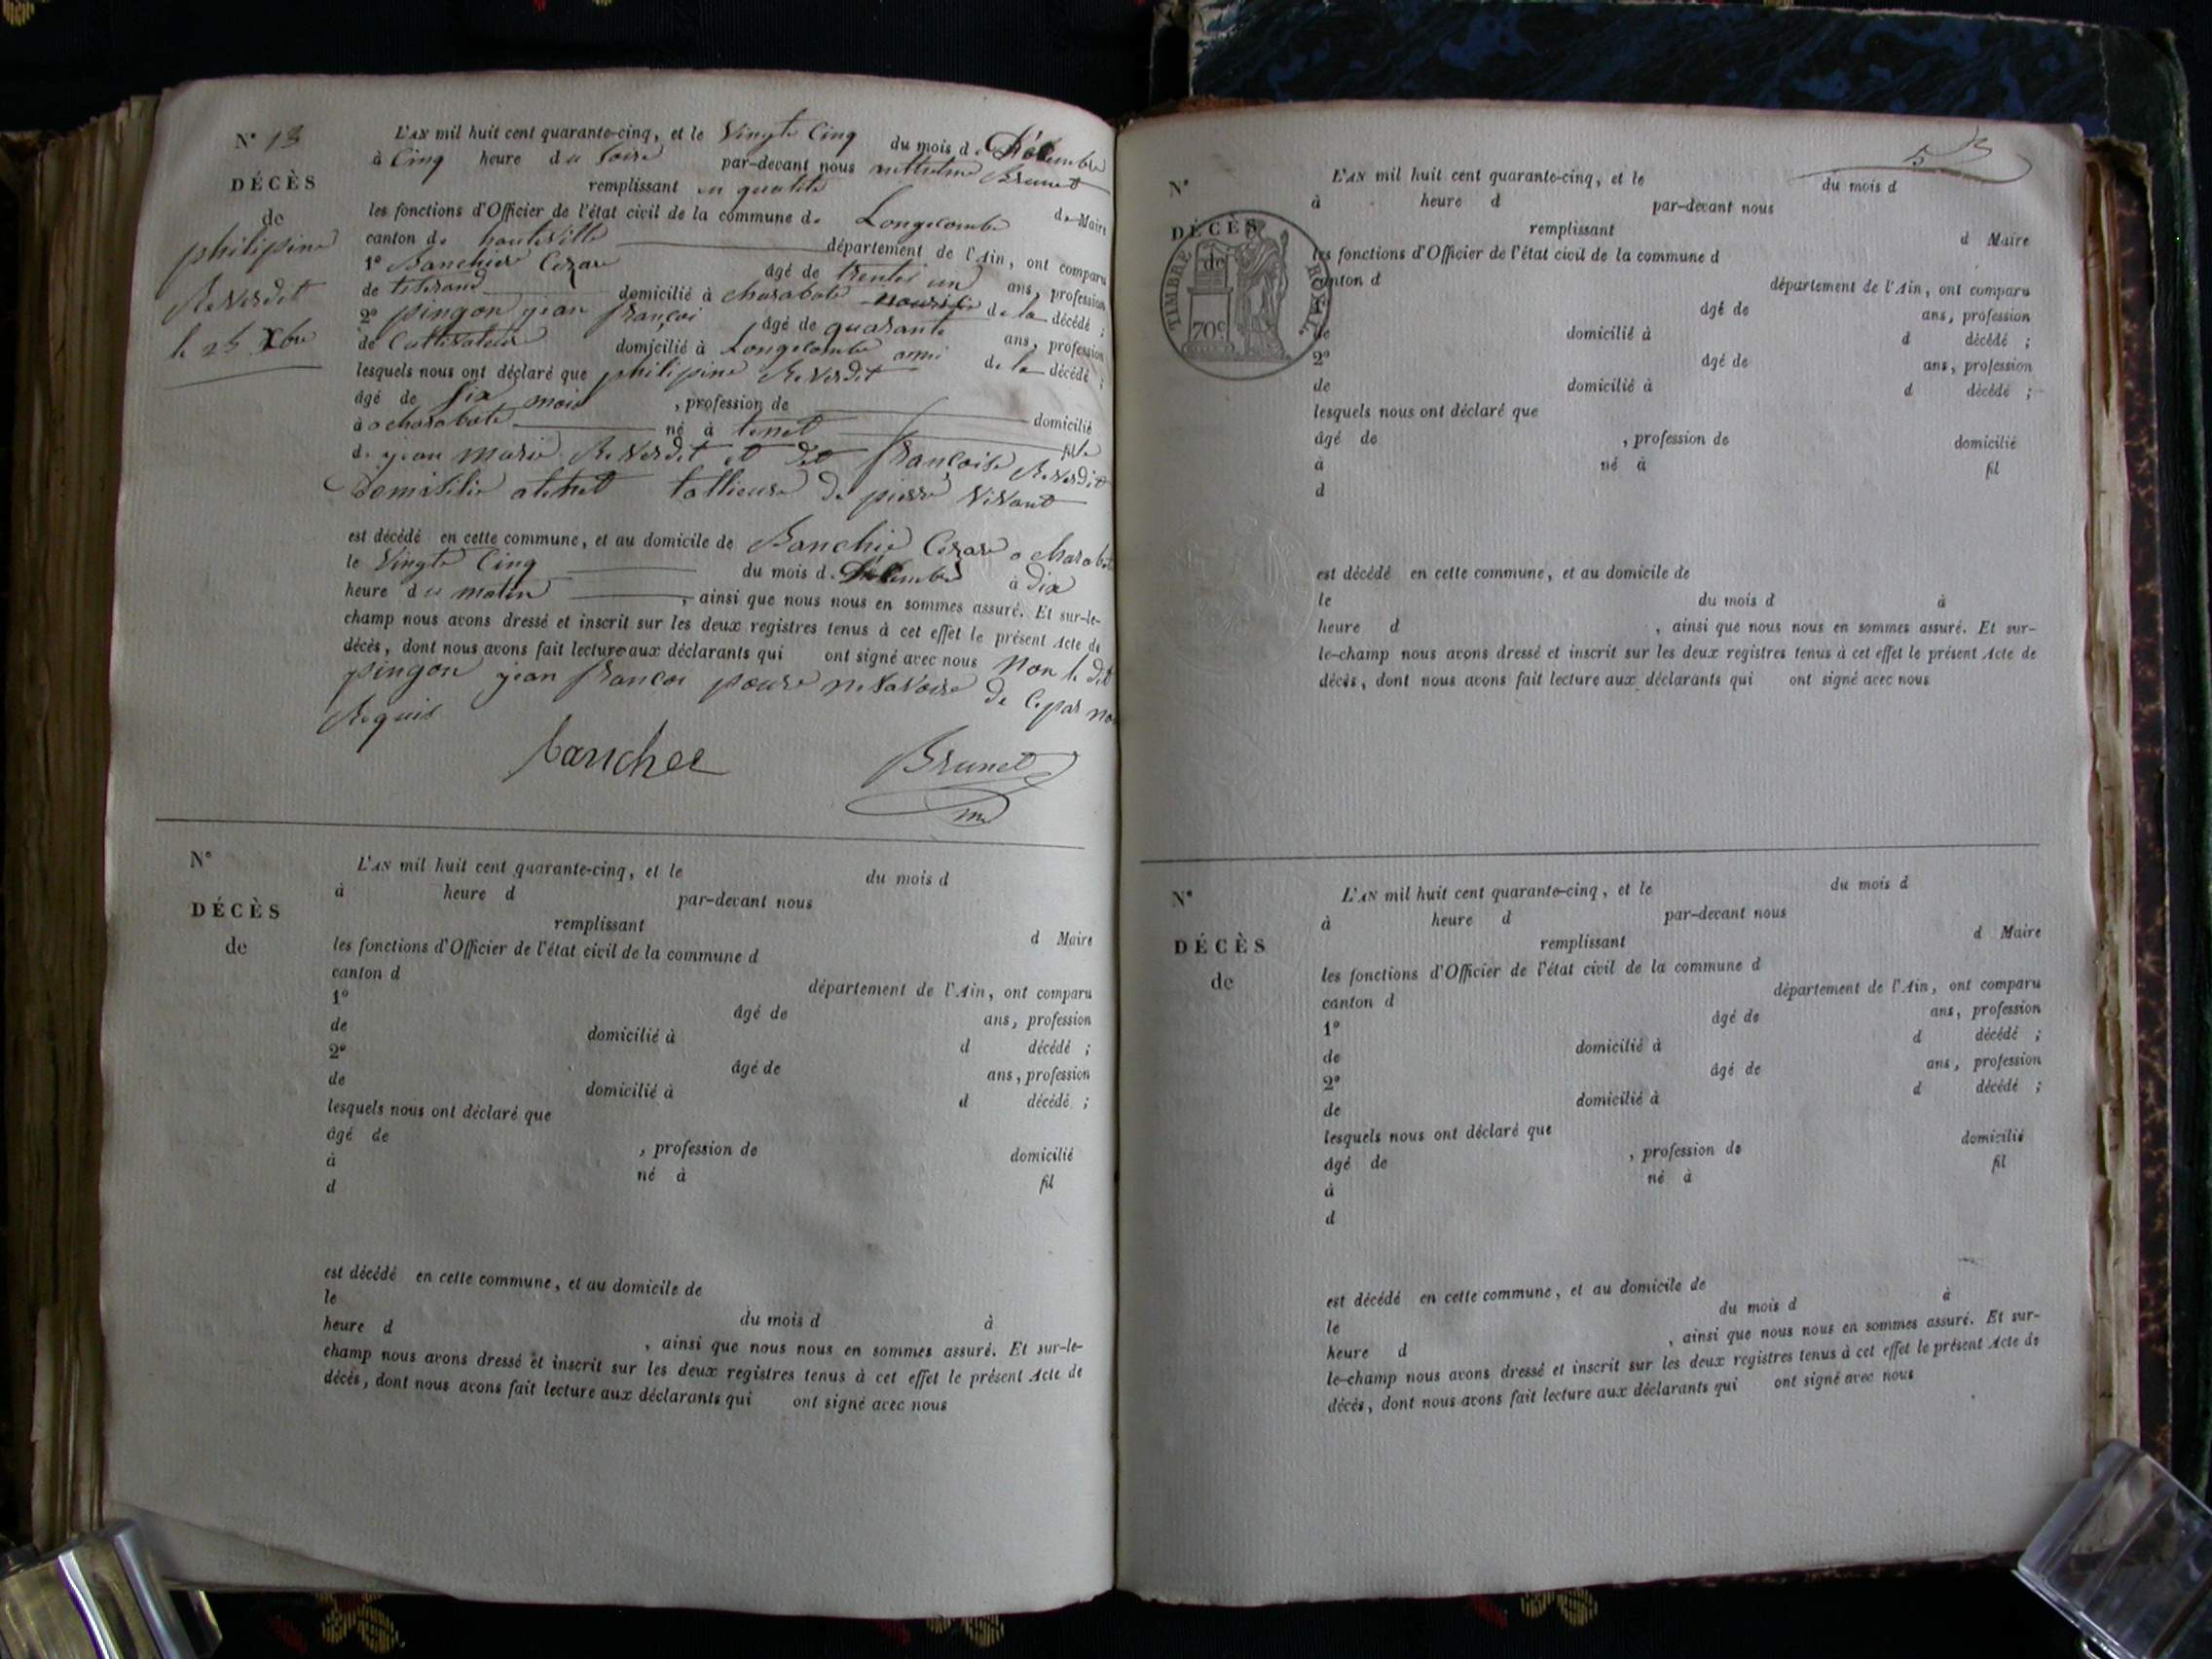 N° 13
DÉCÈS
de
philipine
Reverdit
le 25 Xbre
L'AN mil huit cent quarante-cinq, et le Vingte Cinq du mois de Décembre
à Cinq heure du soire par-devant nous Brunet
remplissant en qualité de Maire
les fonctions d'Officier de l'état civil de la commune de Longecombe
canton de hauteville département de l'Ain, ont comparu
1° Banchet Cezar âgé de trente un ans, profession
de titerand domicilié à charabote nourisie de la décédé ;
2° pingon jean françoi âgé de quarante ans, profession
de Cultivateur domicilié à Longecombe ami de la décédé ;
lesquels nous ont déclaré que philipine Reverdit
âgé de Six mois , profession de domicilié
à a charabote né à tenet fille
de jean marie Reverdit et de françoise Reverdit
Domisilie a tenet tallieure de pierre vivant
est décédé en cette commune, et au domicile de Banchie Cezare a charabote
le Vingte Cinq du mois de Décembre à dix
heure du matin , ainsi que nous nous en sommes assuré. Et sur-le-
champ nous avons dressé et inscrit sur les deux registres tenus à cet effet le présent Acte de
décès, dont nous avons fait lecture aux déclarants qui ont signé avec nous non le dit
pingon jean françoi poure ne savoire de ce par nou
Requis
banchet Brunet
m
N°
DÉCÈS
de
L'AN mil huit cent quarante-cinq, et le du mois d
à heure d par-devant nous
remplissant d Maire
les fonctions d'Officier de l'état civil de la commune d
canton d département de l'Ain, ont comparu
1° âgé de ans, profession
de domicilié à d décédé ;
2° âgé de ans, profession
de domicilié à d décédé ;
lesquels nous ont déclaré que
âgé de , profession de domicilié
à né à fil
d
est décédé en cette commune, et au domicile de
le du mois d à
heure d , ainsi que nous nous en sommes assuré. Et sur-le-
champ nous avons dressé et inscrit sur les deux registres tenus à cet effet le présent Acte de
décès, dont nous avons fait lecture aux déclarants qui ont signé avec nous
N°
DÉCÈS
de
TIMBRE ROYAL
70c
L'AN mil huit cent quarante-cinq, et le du mois d
à heure d par-devant nous
remplissant d Maire
les fonctions d'Officier de l'état civil de la commune d
canton d département de l'Ain, ont comparu
âgé de ans, profession
de domicilié à d décédé ;
2° âgé de ans, profession
de domicilié à d décédé ;
lesquels nous ont déclaré que
âgé de , profession de domicilié
à né à fil
d
est décédé en cette commune, et au domicile de
le du mois d à
heure d , ainsi que nous nous en sommes assuré. Et sur-
le-champ nous avons dressé et inscrit sur les deux registres tenus à cet effet le présent Acte de
décès, dont nous avons fait lecture aux déclarants qui ont signé avec nous
N°
DÉCÈS
de
L'AN mil huit cent quarante-cinq, et le du mois d
à heure d par-devant nous
remplissant d Maire
les fonctions d'Officier de l'état civil de la commune d
canton d département de l'Ain, ont comparu
1° âgé de ans, profession
de domicilié à d décédé ;
2° âgé de ans, profession
de domicilié à d décédé ;
lesquels nous ont déclaré que
âgé de , profession de domicilié
à né à fil
d
est décédé en cette commune, et au domicile de
le du mois d à
heure d , ainsi que nous nous en sommes assuré. Et sur-
le-champ nous avons dressé et inscrit sur les deux registres tenus à cet effet le présent Acte de
décès, dont nous avons fait lecture aux déclarants qui ont signé avec nous